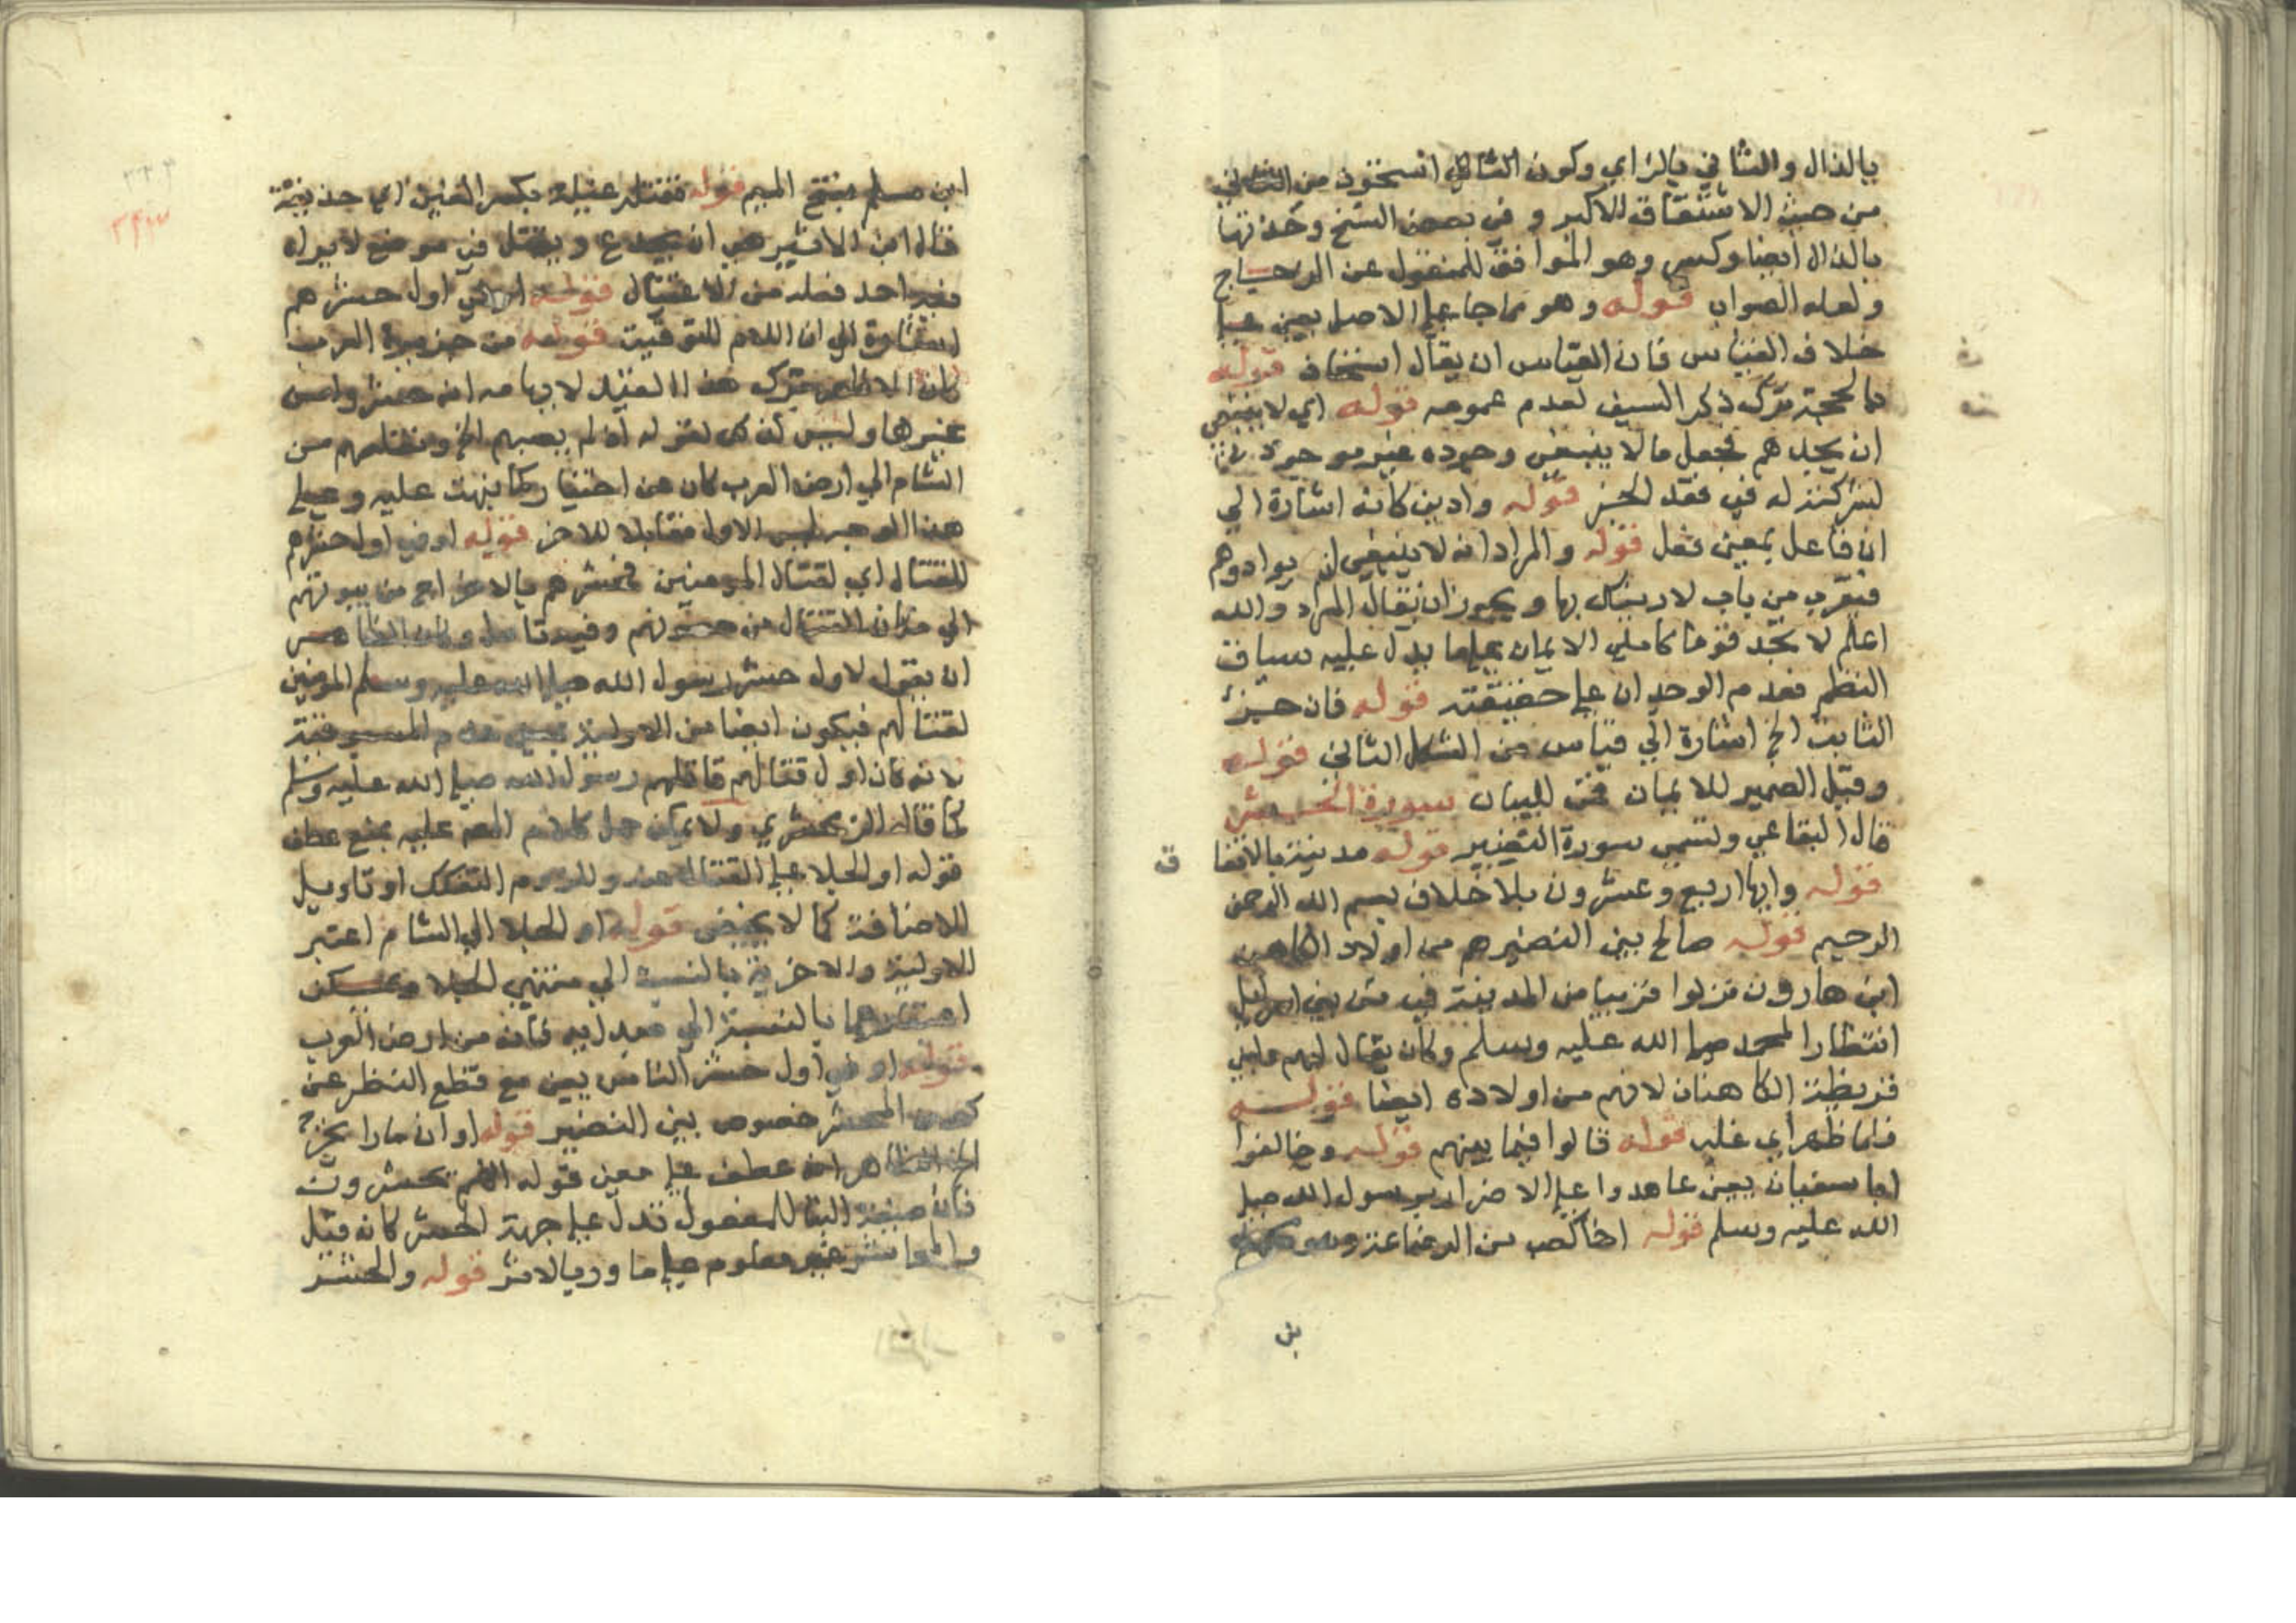 بالذال والثاني بالزاي وكون الثاني
من حيث الاشتقاق الاكبر و في بعض النسخ وحذتها
بالذال ايضا وكسر وهو الموافق للمنقول عن الزجاج
ولعله الصواب قوله وهو مما جا على الاصل يعني على
خلاف القياس فان القياس ان يقال استحاذ قوله
بالحجة ترك ذكر السيف لعدم عمومه قوله اي لا ينبغي
ان يجدهم فجعل ما لا ينبغي وجوده غير موجود
لشركته له في فقد الخير قوله وادين كانه اشارة الي
ان فاعل بمعنى فعل قوله والمراد انه لا ينبغي ان يوادوهم
فيقرب من باب لا رينك بها ويجوز ان يقال المراد والله
اعلم لا تجد قوما كاملي الايمان على ما يدل عليه سياق
النظم فعدم الوجدان على حقيقته قوله فان جز
الثابت الخ اشارة الي قياس من الشكل الثاني قوله
وقيل الضمير للايمان فمن للبيان سورة الحشر
قال البقاعي وتسمى سورة النضير قوله مدنية بالاتفا
ق
قوله وايها اربع وعشرون بلا خلاف بسم الله الرحمن
الرحيم قوله صالح بني النضير هم من اولاد الكاهن
ابن هارون نزلوا قريبا من المدينة في فتن بني اسرايل
انتظارا لمحمد صلى الله عليه وسلم وكان يقال لهم ولبني
قريظة الكاهنان لانهم من اولاده ايضا قوله
فلما ظهر اي غلب قوله قالوا فيما بينهم قوله وحالفوا
ابا سفيان يعني عاهدوا على الاضرار برسول الله صلى
الله عليه وسلم قوله اخا كعب من الرضاعة وهو محمد
بن
ابن مسلم بفتح الميم قوله فقتله غيلة بكسر الغين اي خديعة
قال ابن الاثير هي ان يخدع ويقتل في موضع لا يراه
فيه احد فعله من الاغتيال قوله اي في اول حشرهم
اشارة الي ان اللام للتوقيت قوله من جزيرة العرب
كان الاظهر ترك هذا القيد لايهامه انه حشر وامن
غيرها وليس كذلك لقوله ان لم يصبهم الخ ونقلهم من
الشام الي ارض العرب كان عن اختيار كما نبهت عليه وعلي
هذا الوجه ليس الاول مقابلا للاخر قوله او في اول حشرهم
للقتال اي لقتال المومنين فحشرهم بالاخراج من بيوتهم
الي مكان القتال من حصونهم وفيه تامل وكان الظاهر
ان يقول لاول حشر رسول الله صلى الله عليه وسلم المومنين
لقتالهم فيكون ايضا من الاولية
لانه كان اول قتالهم قاتلهم رسول الله صلى الله عليه وسلم
كما قال الزمخشري ولا يمكن حمل كلام المص عليه بمنع عطف
قوله او الجلا على القتال عنه وللزوم التفكك او تاويل
للاضافة كما لا يخفى قوله او الجلا الي الشام اعتبر
الاولية والاخرية بالنسبة الي منتهي الجلا ويمكن
اعتبارهما بالنسبة الي مبدايه فانه من ارض العرب
قوله او في اول حشر الناس يعني مع قطع النظر عن
كون المحشر خصوص بني النضير قوله او ان نارا تخرج
الخ الظاهر انه عطف على معنى قوله انهم يحشرون
فان صيغة البنا للمفعول تدل على جهة الحشر كانه قيل
والحاشر غير معلوم على ما ورد بالاثر قوله والحشر